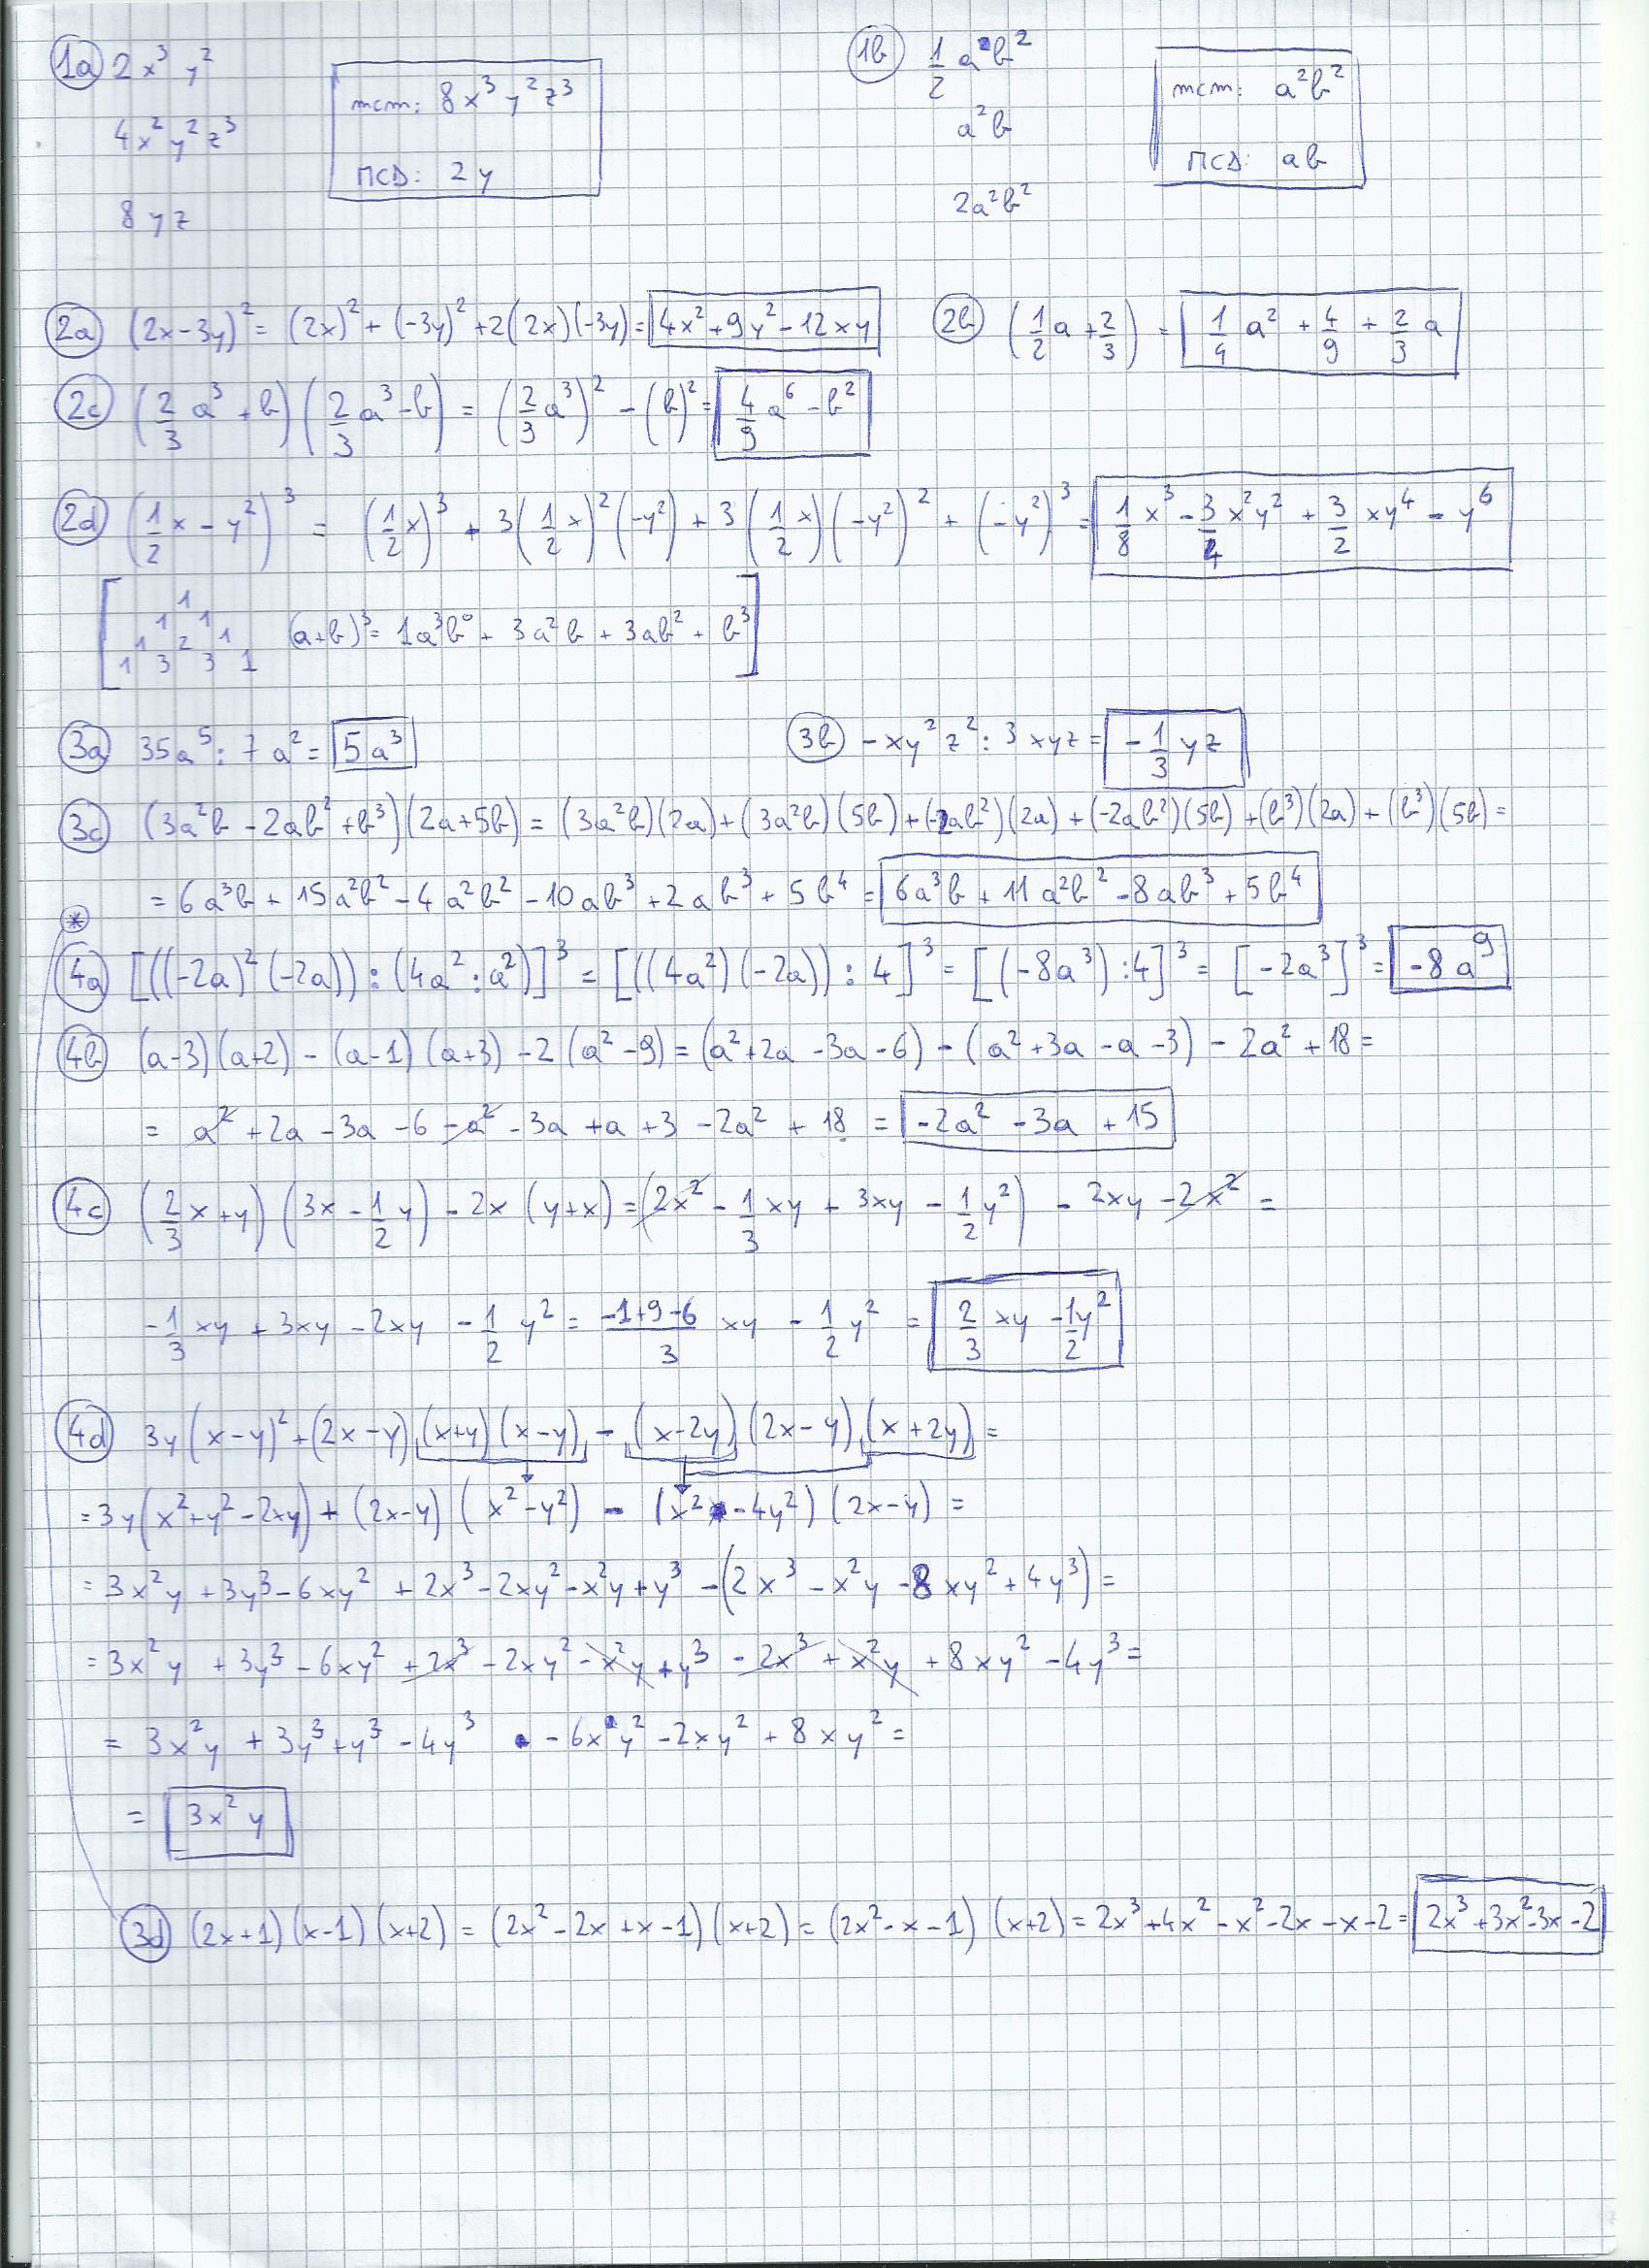 1a 2x³y² mcm: 8x³y²z³ 1b ½ab²
4x²y²z³ MCD: 2y a²b mcm: a²b²
8yz 2a²b² MCD: ab
2a (2x-3y)² = (2x)² + (-3y)² + 2(2x)(-3y) = 4x² + 9y² - 12xy 2b (1/2 a + 2/3) = 1/4 a² + 4/9 + 2/3 a
2c (2/3 a³ + b)(2/3 a³ - b) = (2/3 a³)² - (b)² = 4/9 a⁶ - b²
2d (1/2 x - y²)³ = (1/2 x)³ + 3(1/2 x)²(-y²) + 3(1/2 x)(-y²)² + (-y²)³ = 1/8 x³ - 3/4 x²y² + 3/2 xy⁴ - y⁶
1
1 1
1 2 1 (a+b)³ = 1a³b⁰ + 3a²b + 3ab² + b³
1 3 3 1
3a 35a⁵ : 7a² = 5a³ 3b -xy²z² : 3xyz = -1/3 yz
3c (3a²b - 2ab² + b³)(2a+5b) = (3a²b)(2a) + (3a²b)(5b) + (-2ab²)(2a) + (-2ab²)(5b) + (b³)(2a) + (b³)(5b) =
= 6a³b + 15a²b² - 4a²b² - 10ab³ + 2ab³ + 5b⁴ = 6a³b + 11a²b² - 8ab³ + 5b⁴
*
4a [((-2a)²(-2a)) : (4a² : a²)]³ = [((4a²)(-2a)) : 4]³ = [(-8a³) : 4]³ = [-2a³]³ = -8a⁹
4b (a-3)(a+2) - (a-1)(a+3) - 2(a²-9) = (a²+2a-3a-6) - (a²+3a-a-3) - 2a² + 18 =
= a² + 2a - 3a - 6 - a² - 3a + a + 3 - 2a² + 18 = -2a² - 3a + 15
4c (2/3 x + y)(3x - 1/2 y) - 2x(y+x) = (2x² - 1/3 xy + 3xy - 1/2 y²) - 2xy - 2x² =
-1/3 xy + 3xy - 2xy - 1/2 y² = (-1+9-6)/3 xy - 1/2 y² = 2/3 xy - 1/2 y²
4d 3y(x-y)² + (2x-y)(x+y)(x-y) - (x-2y)(2x-y)(x+2y) =
= 3y(x²+y²-2xy) + (2x-y)(x²-y²) - (x²-4y²)(2x-y) =
= 3x²y + 3y³ - 6xy² + 2x³ - 2xy² - x²y + y³ - (2x³ - x²y - 8xy² + 4y³) =
= 3x²y + 3y³ - 6xy² + 2x³ - 2xy² - x²y + y³ - 2x³ + x²y + 8xy² - 4y³ =
= 3x²y + 3y³ + y³ - 4y³ - 6xy² - 2xy² + 8xy² =
= 3x²y
3d (2x+1)(x-1)(x+2) = (2x² - 2x + x - 1)(x+2) = (2x² - x - 1)(x+2) = 2x³ + 4x² - x² - 2x - x - 2 = 2x³ + 3x² - 3x - 2